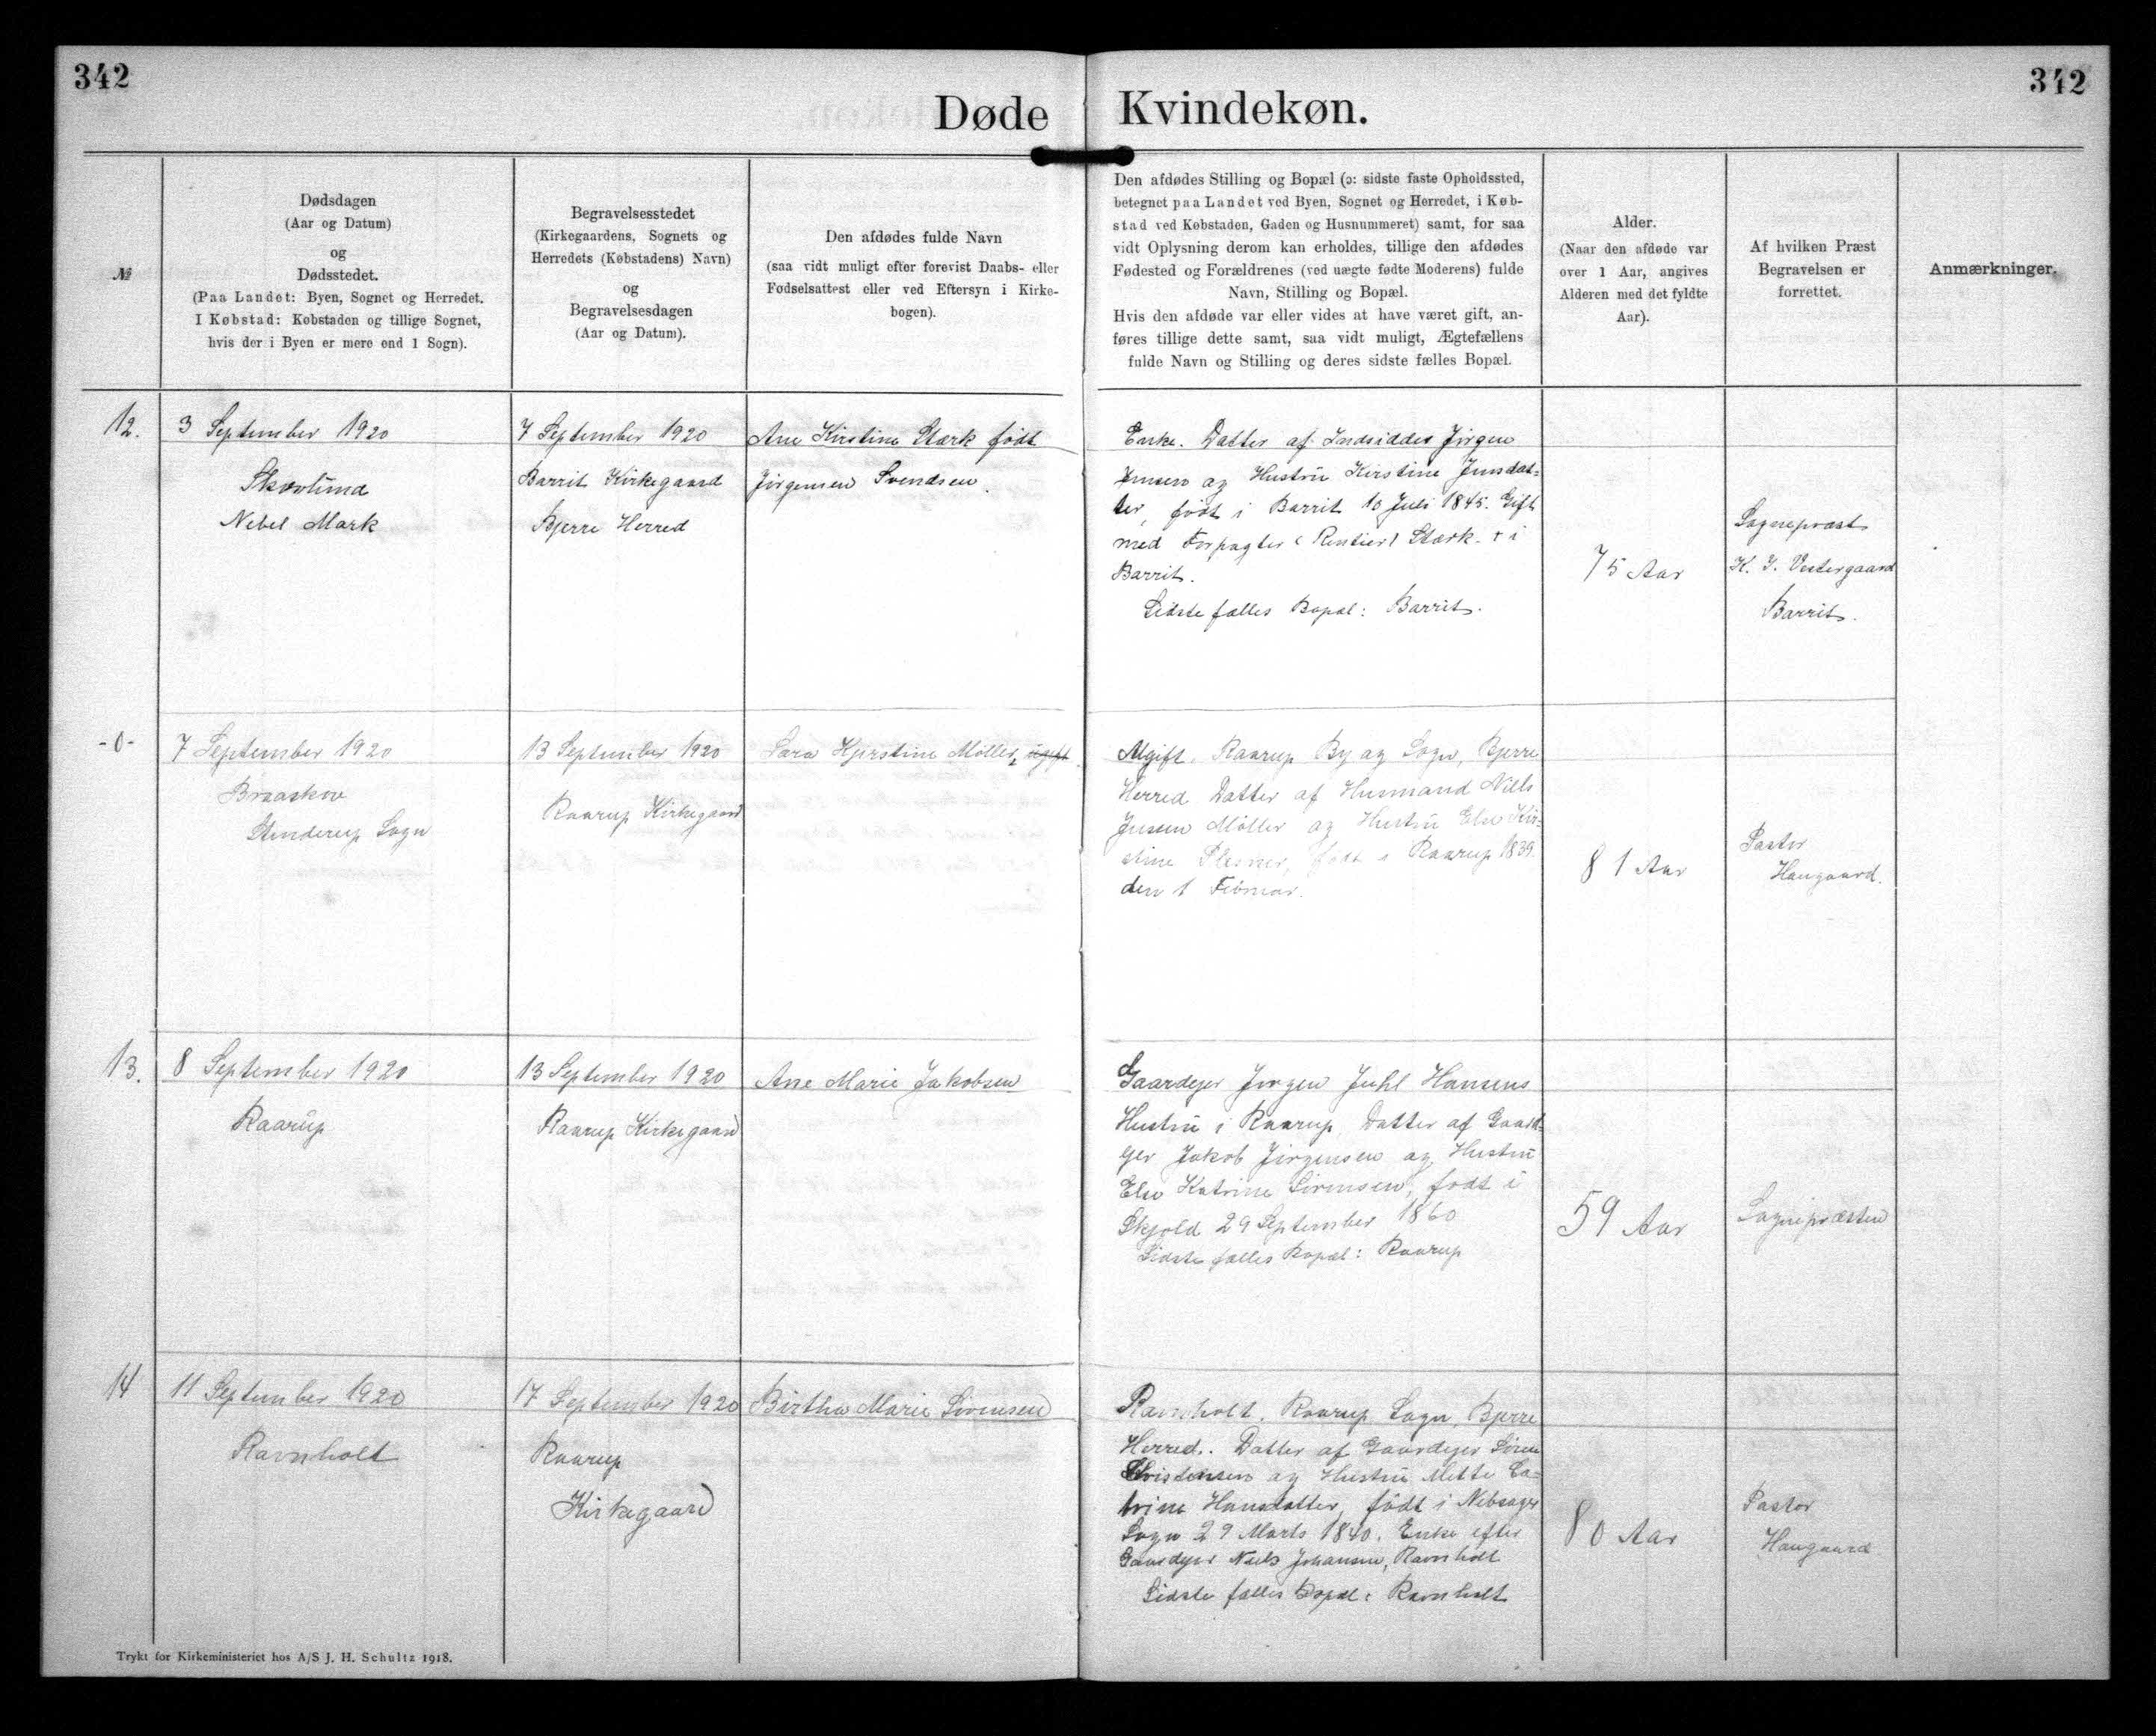 342
342
Døde
Kvindekøn.
№
Dødsdagen
(Aar og Datum)
og
Dødsstedet.
(Paa Landet: Byen, Sognet og Herredet.
I Købstad: Købstaden og tillige Sognet,
hvis der i Byen er mere end 1 Sogn).
Begravelsesstedet
(Kirkegaardens, Sognets og
Herredets (Købstadens) Navn)
og
Begravelsesdagen
(Aar og Datum).
Den afdødes fulde Navn
(saa vidt muligt efter forevist Daabs- eller
Fødselsattest eller ved Eftersyn i Kirke-
bogen).
Den afdødes Stilling og Bopæl (ɔ: sidste faste Opholdssted,
betegnet paa Landet ved Byen, Sognet og Herredet, i Køb-
stad ved Købstaden, Gaden og Husnummeret) samt, for saa
vidt Oplysning derom kan erholdes, tillige den afdødes
Fødested og Forældrenes (ved uægte fødte Moderens) fulde
Navn, Stilling og Bopæl.
Hvis den afdøde var eller vides at have været gift, an-
føres tillige dette samt, saa vidt muligt, Ægtefællens
fulde Navn og Stilling og deres sidste fælles Bopæl.
Alder.
(Naar den afdøde var
over 1 Aar, angives
Alderen med det fyldte
Aar).
Af hvilken Præst
Begravelsen er
forrettet.
Anmærkninger.
12.
3 September 1920
Skovlund
Nebel Mark
7 September 1920
Barrit Kirkegaard
Bjerre Herred
Ane Kirstine Stærk født
Jørgensen Svendsen.
Enke. Datter af Indsidder Jørgen
Jensen og Hustru Kirstine Jensdat=
ter, født i Barrit 10 Juli 1845. Gift
med Forpagter (Rentier) Stærk. + i
Barrit.
Sidste fælles Bopæl: Barrit.
75 Aar
Sognepræst
K. J. Vestergaard
Barrit.
-0-
7 September 1920
Braaskov
Stenderup Sogn
13 September 1920
Raarup Kirkegaard
Sara Hjerstine Møller, ugift.
Ugift. Raarup By og Sogn, Bjerre
Herred. Datter af Husmand Niels
Jensen Møller og Hustru Else Kir=
stine Plesner, født i Raarup 1839.
den 1 Februar.
81 Aar
Pastor
Haugaard.
13.
8 September 1920
Raarup
13 September 1920
Raarup Kirkegaard
Ane Marie Jakobsen
Gaardejer Jørgen Juhl Hansens
Hustru i Raarup. Datter af Gaard=
ejer Jakob Jørgensen og Hustru
Else Katrine Sørensen, født i
Skjold 29 September 1860
Sidste fælles Bopæl: Raarup
59 Aar
Sognepræsten
14
11 September 1920
Ravnholt
17 September 1920
Raarup
Kirkegaard
Birthe Marie Sørensen
Ravnholt, Raarup Sogn, Bjerre
Herred. Datter af Gaardejer Søren
Christensen og Hustru Mette Ca=
trine Hansdatter, født i Nebsager
Sogn 29 Marts 1840. Enke efter
Gaardejer Niels Johansen, Ravnholt
Sidste fælles Bopæl: Ravnholt
80 Aar
Pastor
Haugaard
Trykt for Kirkeministeriet hos A/S J. H. Schultz 1918.